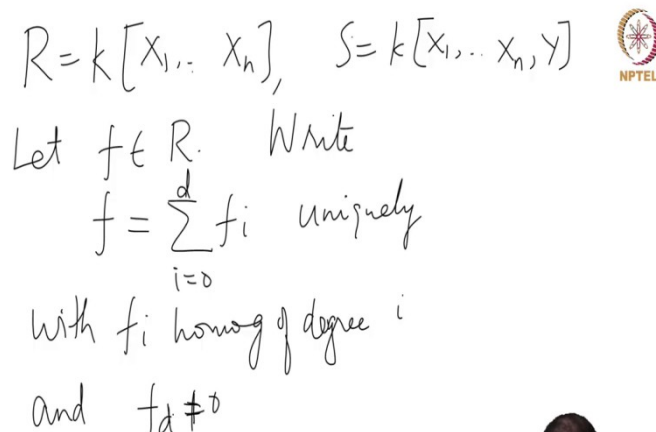 R = k[X₁,.. Xₙ], S = k[X₁,.. Xₙ, Y]
NPTEL
Let f ∈ R. Write
f = ∑_{i=0}^{d} fᵢ uniquely
with fᵢ homog of degree i
and f_d ≠ 0